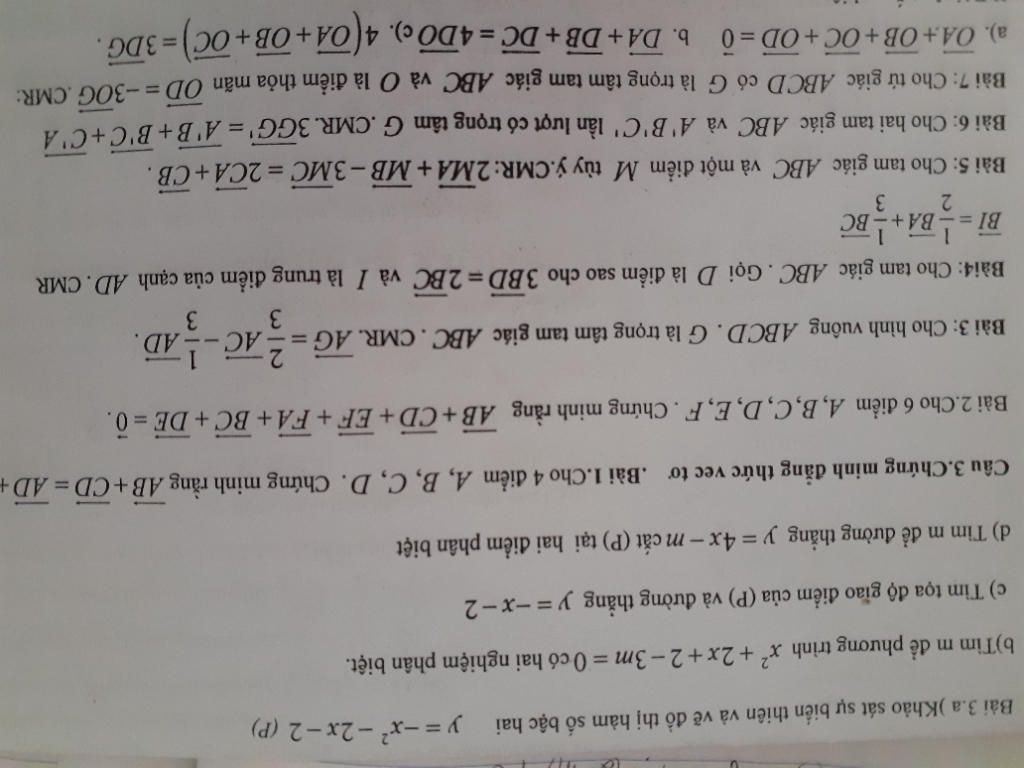 Bài 3.a )Khảo sát sự biến thiên và vẽ đồ thị hàm số bậc hai y = −x² − 2x − 2 (P)
b)Tìm m để phương trình x² + 2x + 2 − 3m = 0 có hai nghiệm phân biệt.
c) Tìm tọa độ giao điểm của (P) và đường thẳng y = −x − 2
d) Tìm m để đường thẳng y = 4x − m cắt (P) tại hai điểm phân biệt
Câu 3.Chứng minh đẳng thức vec tơ .Bài 1.Cho 4 điểm A, B, C, D. Chứng minh rằng AB⃗ + CD⃗ = AD⃗ +
Bài 2.Cho 6 điểm A, B, C, D, E, F . Chứng minh rằng AB⃗ + CD⃗ + EF⃗ + FA⃗ + BC⃗ + DE⃗ = 0⃗ .
Bài 3: Cho hình vuông ABCD. G là trọng tâm tam giác ABC. CMR. AG⃗ = 2/3 AC⃗ − 1/3 AD⃗ .
Bài4: Cho tam giác ABC . Gọi D là điểm sao cho 3BD⃗ = 2BC⃗ và I là trung điểm của cạnh AD. CMR
BI⃗ = 1/2 BA⃗ + 1/3 BC⃗
Bài 5: Cho tam giác ABC và một điểm M tùy ý.CMR: 2MA⃗ + MB⃗ − 3MC⃗ = 2CA⃗ + CB⃗ .
Bài 6: Cho hai tam giác ABC và A'B'C' lần lượt có trọng tâm G .CMR. 3GG'⃗ = A'B⃗ + B'C⃗ + C'A⃗
Bài 7: Cho tứ giác ABCD có G là trọng tâm tam giác ABC và O là điểm thỏa mãn OD⃗ = −3OG⃗ .CMR:
a). OA⃗ + OB⃗ + OC⃗ + OD⃗ = 0⃗ b. DA⃗ + DB⃗ + DC⃗ = 4DO⃗ c). 4(OA⃗ + OB⃗ + OC⃗) = 3DG⃗ .